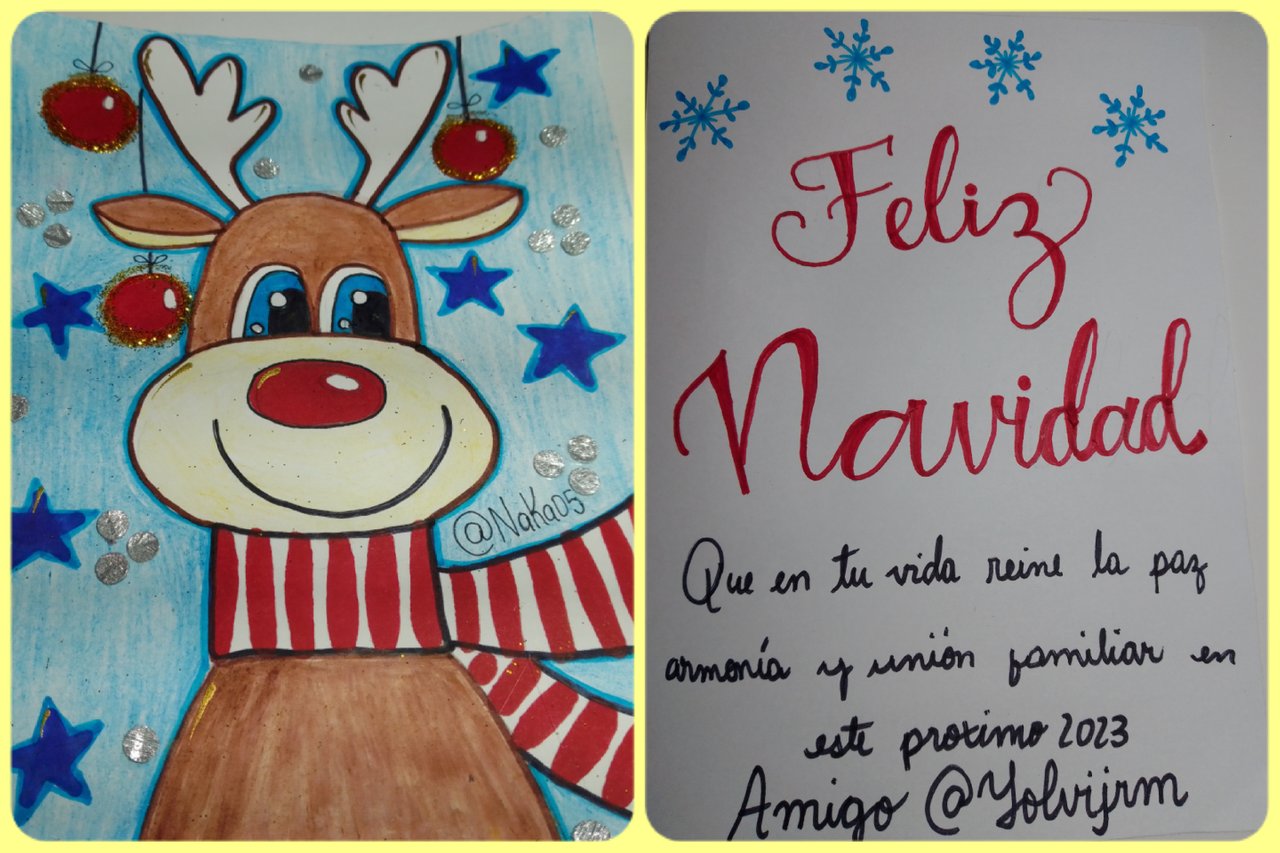 @Naka05
Feliz
Navidad
Que en tu vida reine la paz
armonía y unión familiar en
este proximo 2023
Amigo @Yolvijrm